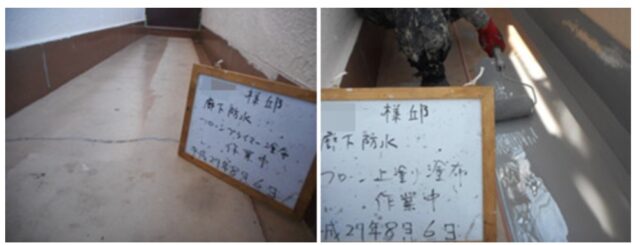 様邸
廊下防水
フローンプライマー塗布
作業中
平成27年8月6日
様邸
廊下防水
フローン上塗り塗布
作業中
成27年8月6日